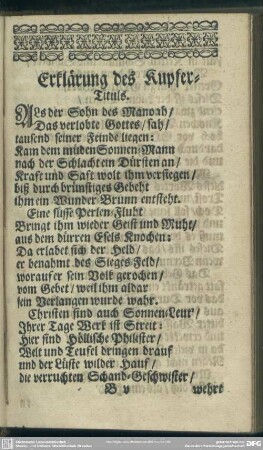 Erklärung des Kupfer-
Tituls.
ALs der Sohn des Manoah/
Das verlobte Gottes/ sah/
tausend seiner Feinde liegen:
Kam dem müden Sonnen-Mann
nach der Schlacht ein Dürsten an/
Kraft und Saft wolt ihm versiegen/
biß durch brünstiges Gebeht
ihm ein Wunder Brunn entsteht.
Eine süsse Perlen-Fluht
Bringt ihm wieder Geist und Muht/
aus dem dürren Esels Knochen:
Da erlabet sich der Held/
er benahmt des Sieges-Feld/
worauf er sein Volk gerochen/
vom Gebet/ weil ihm aldar
sein Verlangen wurde wahr.
Christen sind auch Sonnen-Leut'/
Ihrer Tage Werk ist Streit:
Hier sind Höllische Philister/
Welt und Teufel dringen drauf
und der Lüste wilder Hauf/
die verruchten Schand-Geschwister/
B v wehrt